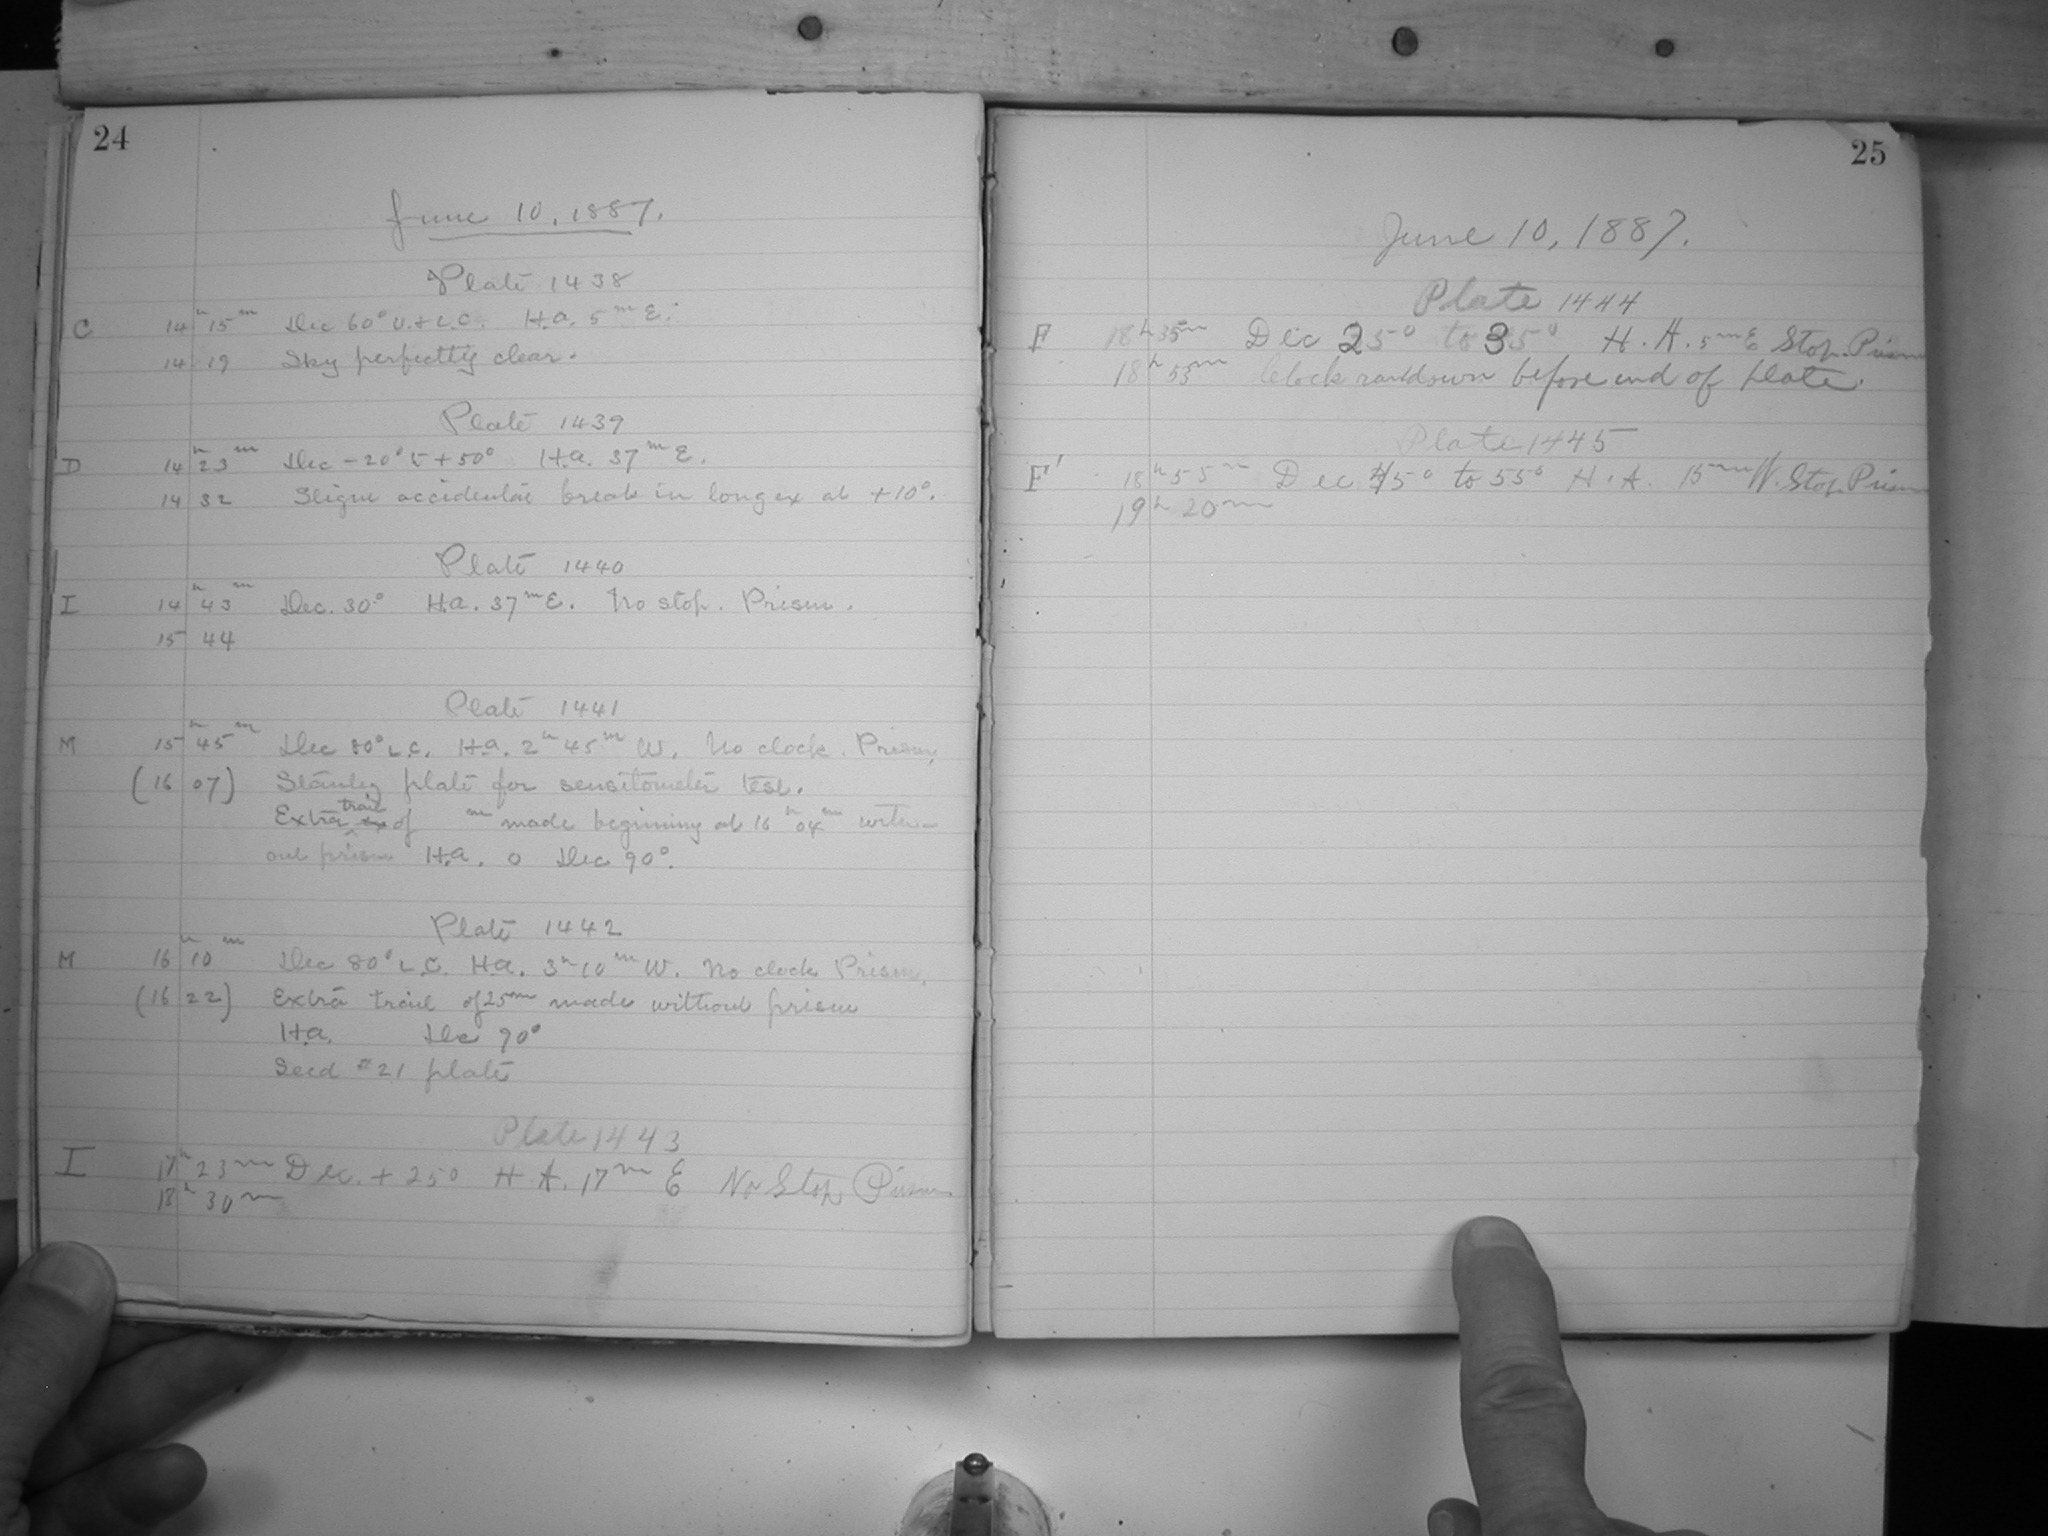 24
June 10, 1887.
Plate 1438
C 14h 15m Dec 60° U.+L.C. H.a. 5m E.
14 19 Sky perfectly clear.
Plate 1439
D 14h 23m Dec -20° t +50° H.a. 37m E.
14 32 Slight accidental break in long ex at +10°.
Plate 1440
I 14h 43m Dec. 30° H.a. 37m E. No stop. Prism.
15 44
Plate 1441
M 15h 45m Dec 80° L.C. H.a. 2h 45m W. No clock. Prism.
(16 07) Stanley plate for sensitometer test.
Extra trail of m made beginning at 16h 04m with-
out prism H.a. 0 Dec 90°.
Plate 1442
M 16h 10m Dec 80° L.C. H.a. 3h 10m W. No clock Prism.
(16 22) Extra trail of 25m made without prism
H.a. Dec 90°
Seed #21 plate
Plate 1443
I 17h 23m Dec. +25° H.A. 17m E No Stop Prism
18h 30m
25
June 10, 1887.
Plate 1444
F 18h 35m Dec 25° to 35° H.A. 5m E Stop. Prism
18h 53m Clock ran down before end of plate.
Plate 1445
F' 18h 55m Dec 45° to 55° H.A. 15m W. Stop. Prism
19h 20m